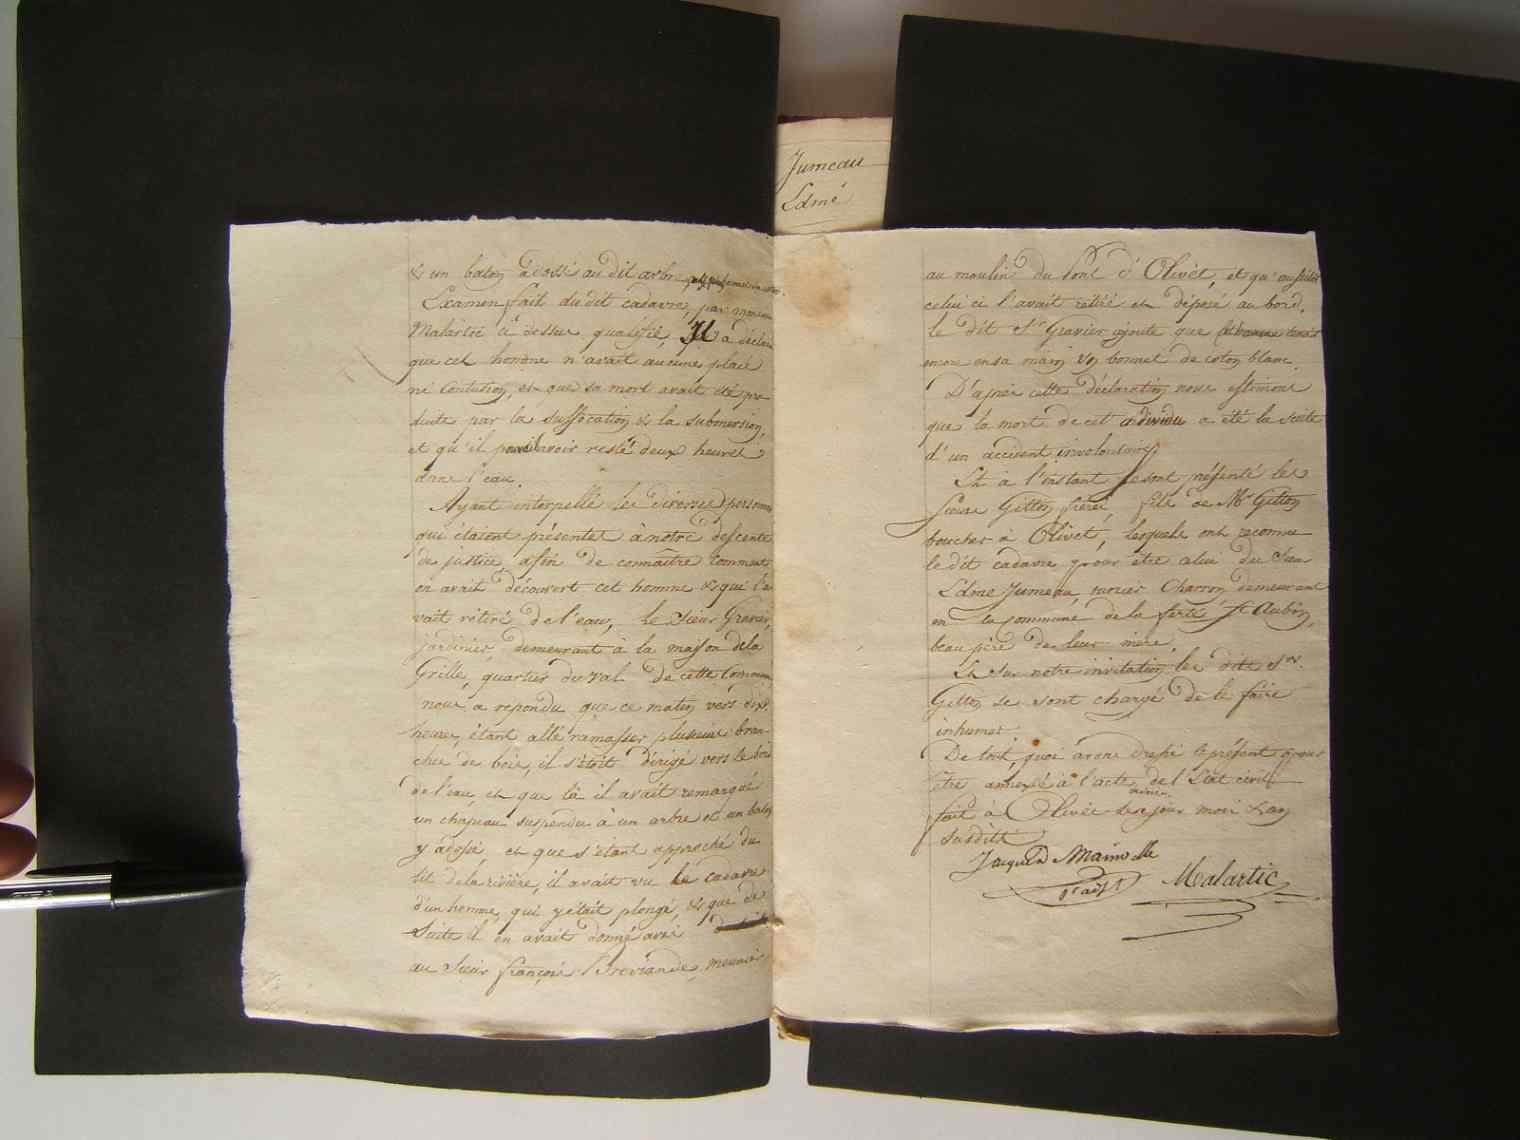 Jumeau
Edmé
& un baton adossé au dit arbre
Examen fait du dit cadavre, par monsieur
Malartic ci dessus qualifié, Il a déclaré
que cet homme n'avait aucune place
ni Contusion, et que sa mort avait été pro
duite par la suffocation & la submersion,
et qu'il pouvait avoir resté deux heures
dans l'eau.
Ayant interpellé les diverses personnes
qui étaient présentes à notre descente
de justice, afin de connaître comment
on avait découvert cet homme & qui l'a
vait retiré de l'eau, le sieur Gravier,
jardinier, demeurant à la maison de la
Grille, quartier du val de cette Commune
nous a repondu que ce matin vers dix
heures, étant allé ramasser plusieurs bran
ches de bois, il s'était dirigé vers le bord
de l'eau et que là il avait remarqué
un chapeau suspendu à un arbre et un baton
y adossé et que s'étant approché du
lit de la rivière, il avait vu le cadavre
d'un homme qui y était plongé, & que de
Suite il en avait donné avis
au Sieur françois Breviande, meunier
au moulin du Pont d'Olivet, et qu'aussitôt
celui ci l'avait retiré et déposé au bord.
le dit Sr Gravier ajoute que
encore en sa main un bonnet de coton blanc.
D'après cette déclaration nous estimons
que la mort de cet individu a été la suite
d'un accident involontaire.
Et à l'instant se sont présenté les
Sieurs Gitton frères, fils de Mr Gitton
boucher à Olivet, lesquels ont reconnu
le dit cadavre pour être celui du Sieur
Edme Jumeau, ancien Charron demeurant
en la commune de la ferté St Aubin,
beau père de leur mère.
Et sur notre invitation les dits Srs
Gitton se sont chargé de le faire
inhumer.
De tout quoi avons dressé le présent pour
être annexé à l'acte de l'Etat civil
fait à Olivet les jour mois & an
susdits
Jacques D Mainville
Malartic